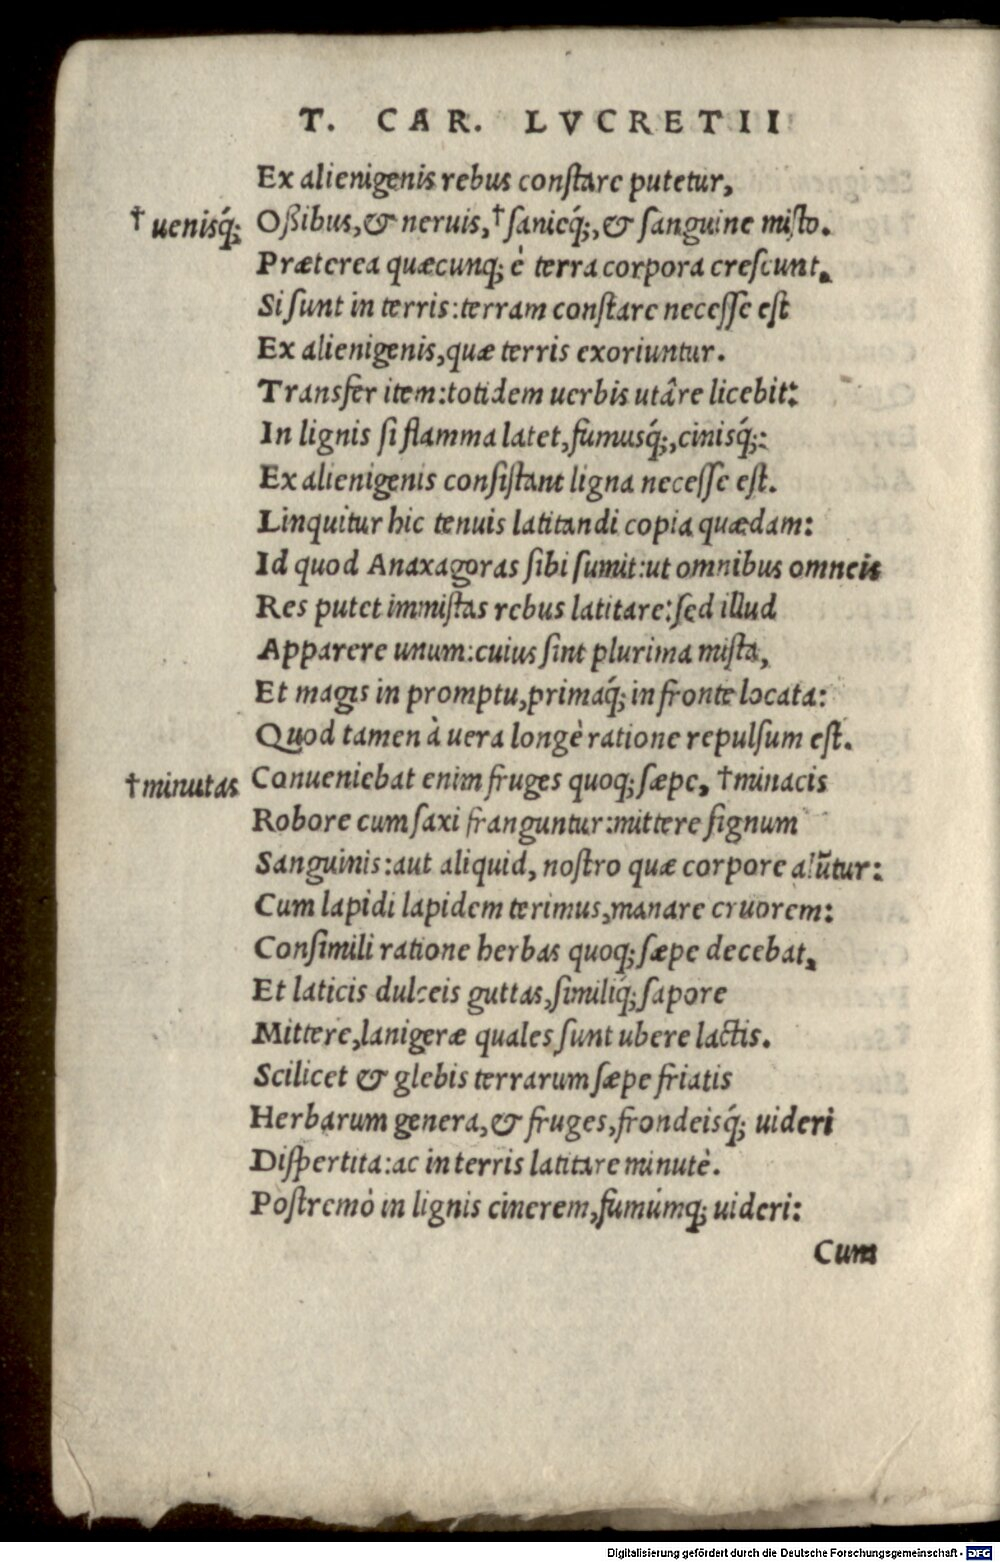 T. CAR. LVCRETII
Ex alienigenis rebus conſtare putetur,
† uenisq́;
Oßibus,& neruis,†ſanieq́;,& ſanguine miſto.
Præterea quæcunq; è terra corpora creſcunt,
Si ſunt in terris:terram conſtare neceſſe eſt
Ex alienigenis,quæ terris exoriuntur.
Transfer item:totidem uerbis utâre licebit:
In lignis ſi flamma latet,fumusq́;,cinisq́;:
Ex alienigenis conſiſtant ligna neceſſe eſt.
Linquitur hic tenuis latitandi copia quædam:
Id quod Anaxagoras ſibi ſumit:ut omnibus omneis
Res putet immiſtas rebus latitare:ſed illud
Apparere unum:cuius ſint plurima miſta,
Et magis in promptu,primaq́; in fronte locata:
Quod tamen à uera longè ratione repulſum eſt.
†minutas
Conueniebat enim fruges quoq; ſæpe, †minacis
Robore cum ſaxi franguntur:mittere ſignum
Sanguinis:aut aliquid, noſtro quæ corpore alūtur:
Cum lapidi lapidem terimus,manare cruorem:
Conſimili ratione herbas quoq; ſæpe decebat,
Et laticis dulceis guttas,ſimiliq́; ſapore
Mittere,lanigeræ quales ſunt ubere lactis.
Scilicet & glebis terrarum ſæpe friatis
Herbarum genera,& fruges,frondeisq́; uideri
Diſpertita:ac in terris latitare minutè.
Poſtremò in lignis cinerem,fumúmq; uideri:
Cum
Digitalisierung gefördert durch die Deutsche Forschungsgemeinschaft - DFG